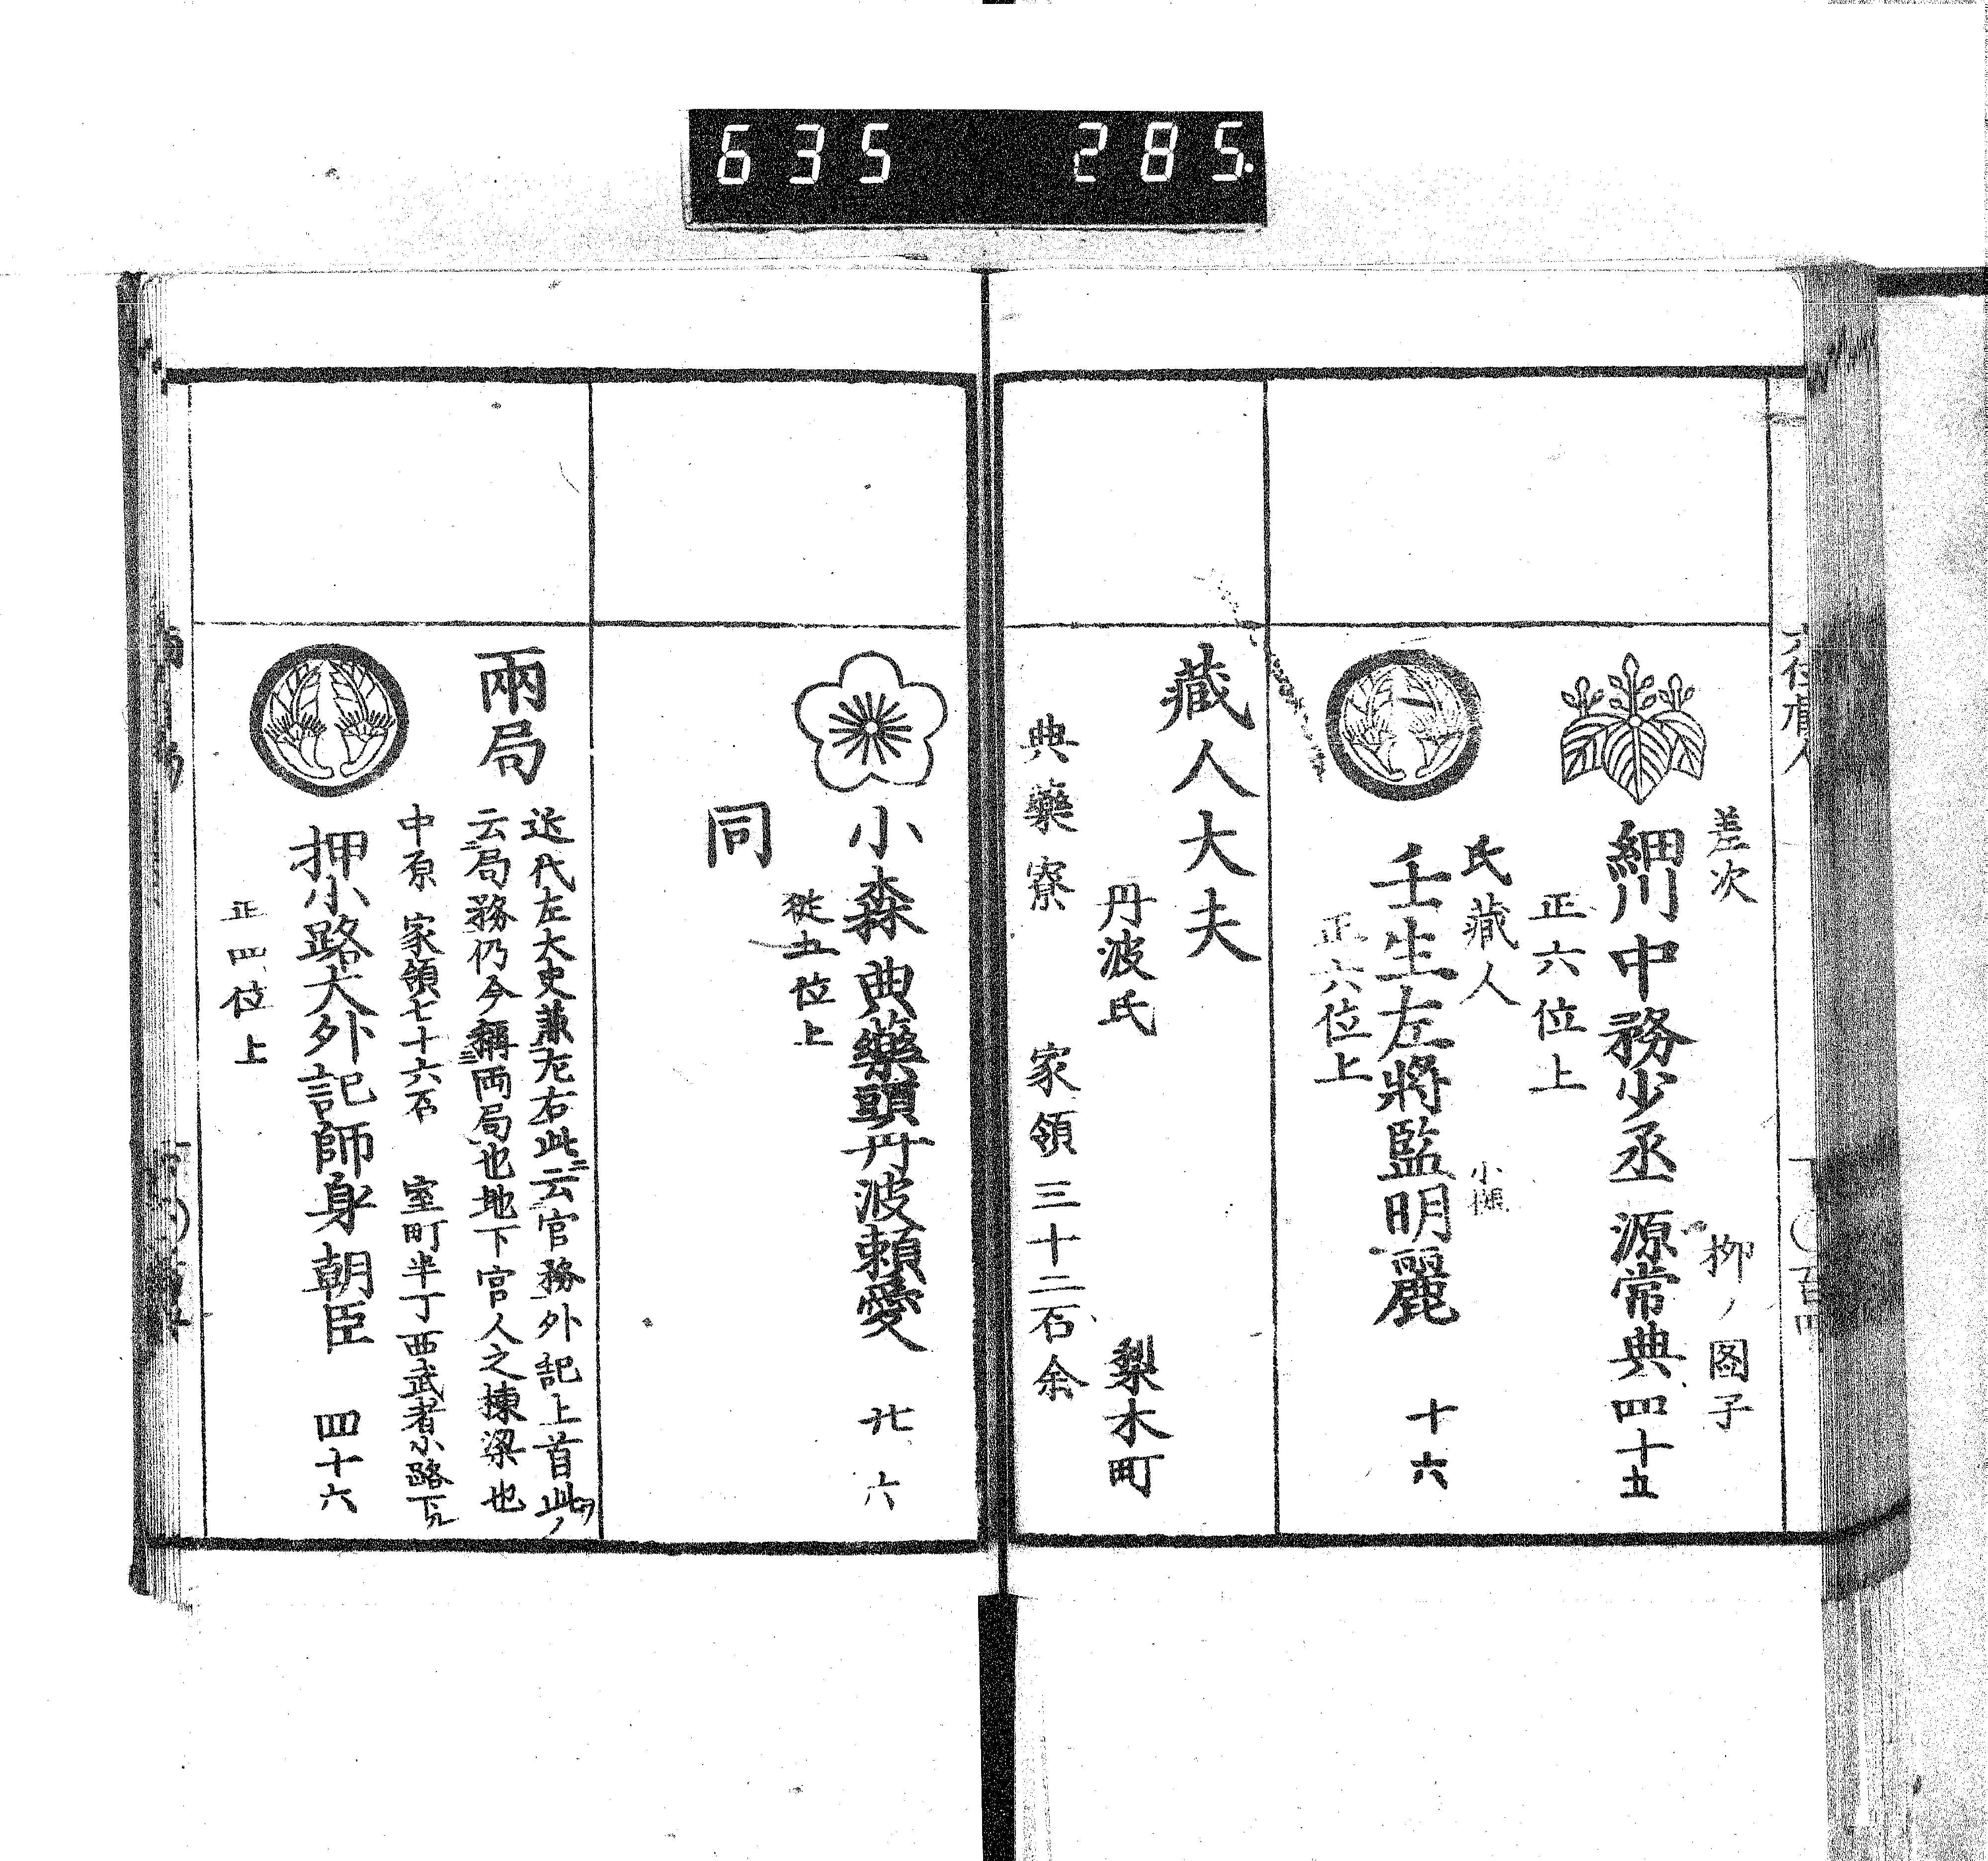 635 285.
六位藏人
差次
柳ノ図子
細川中務少丞 源常典 四十五
正六位上
氏藏人
壬生左將監明麗 十六
正六位上
藏人大夫
丹波氏 梨木町
典藥寮 家領三十二石余
小森典藥頭丹波頼愛 廿六
從五位上
同
兩局
近代左大史兼左右此ニ云官務外記上首此ノ
云ニ局務仍今稱ニ両局也地下官人之棟梁也
中原 家領七十六石 室町半丁西武者小路下ル
押小路大外記師身朝臣 四十六
正四位上